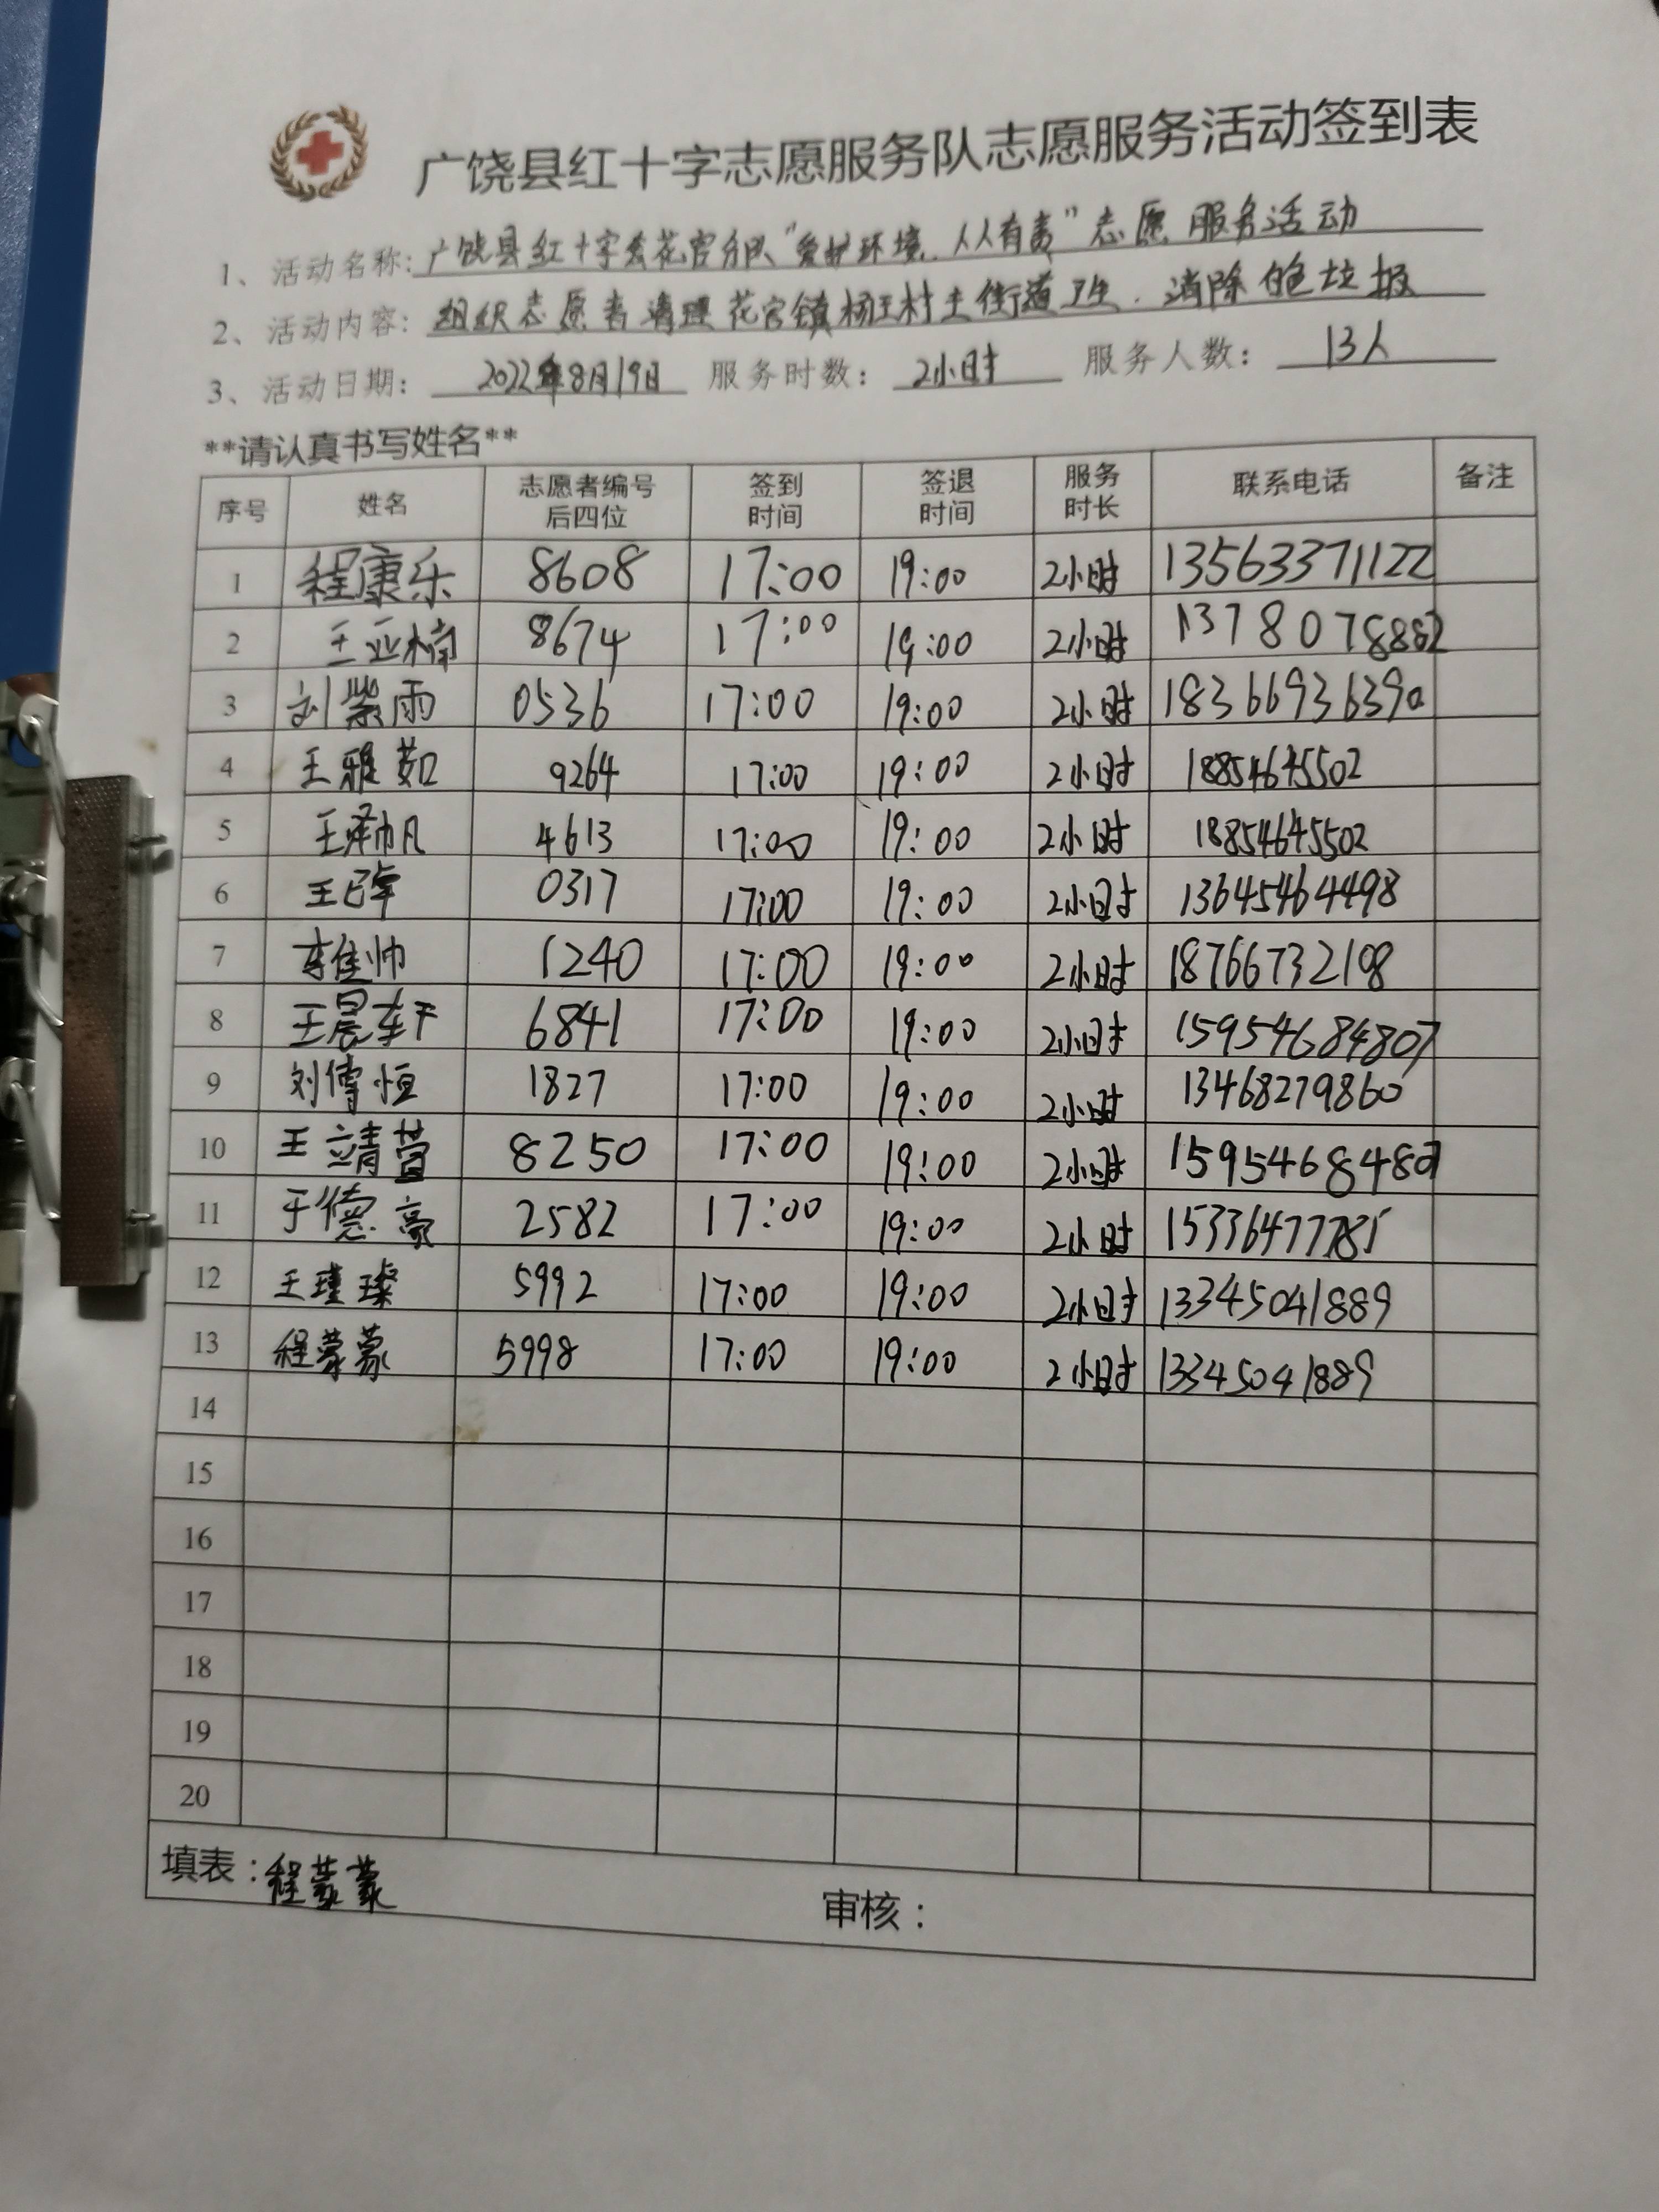 广饶县红十字志愿服务队志愿服务活动签到表
1、活动名称:广饶县红十字会花官分队"爱护环境、人人有责"志愿服务活动
2、活动内容:组织志愿者清理花官镇杨王村主街道卫生.消除白色垃圾
3、活动日期: 2022年8月19日 服务时数: 2小时 服务人数: 13人
**请认真书写姓名**
序号 姓名 志愿者编号后四位 签到时间 签退时间 服务时长 联系电话 备注
1 程康乐 8608 17:00 19:00 2小时 13563371122
2 王亚楠 8674 17:00 19:00 2小时
3 刘紫雨 0536 17:00 19:00 2小时 18366936390
4 王雅茹 9264 17:00 19:00 2小时 18854645502
5 王 帆 4613 17:00 19:00 2小时 18854645502
6 王 0317 17:00 19:00 2小时 13645464498
7 佳帅 1240 17:00 19:00 2小时 18766732198
8 王晨轩 6841 17:00 19:00 2小时 15954684807
9 刘傅恒 1827 17:00 19:00 2小时 13468279860
10 王靖萱 8250 17:00 19:00 2小时 15954684807
11 于德豪 2582 17:00 19:00 2小时 15336477785
12 王瑾璨 5992 17:00 19:00 2小时 13345041889
13 程蒙蒙 5998 17:00 19:00 2小时 13345041889
14
15
16
17
18
19
20
填表:程蒙蒙 审核: